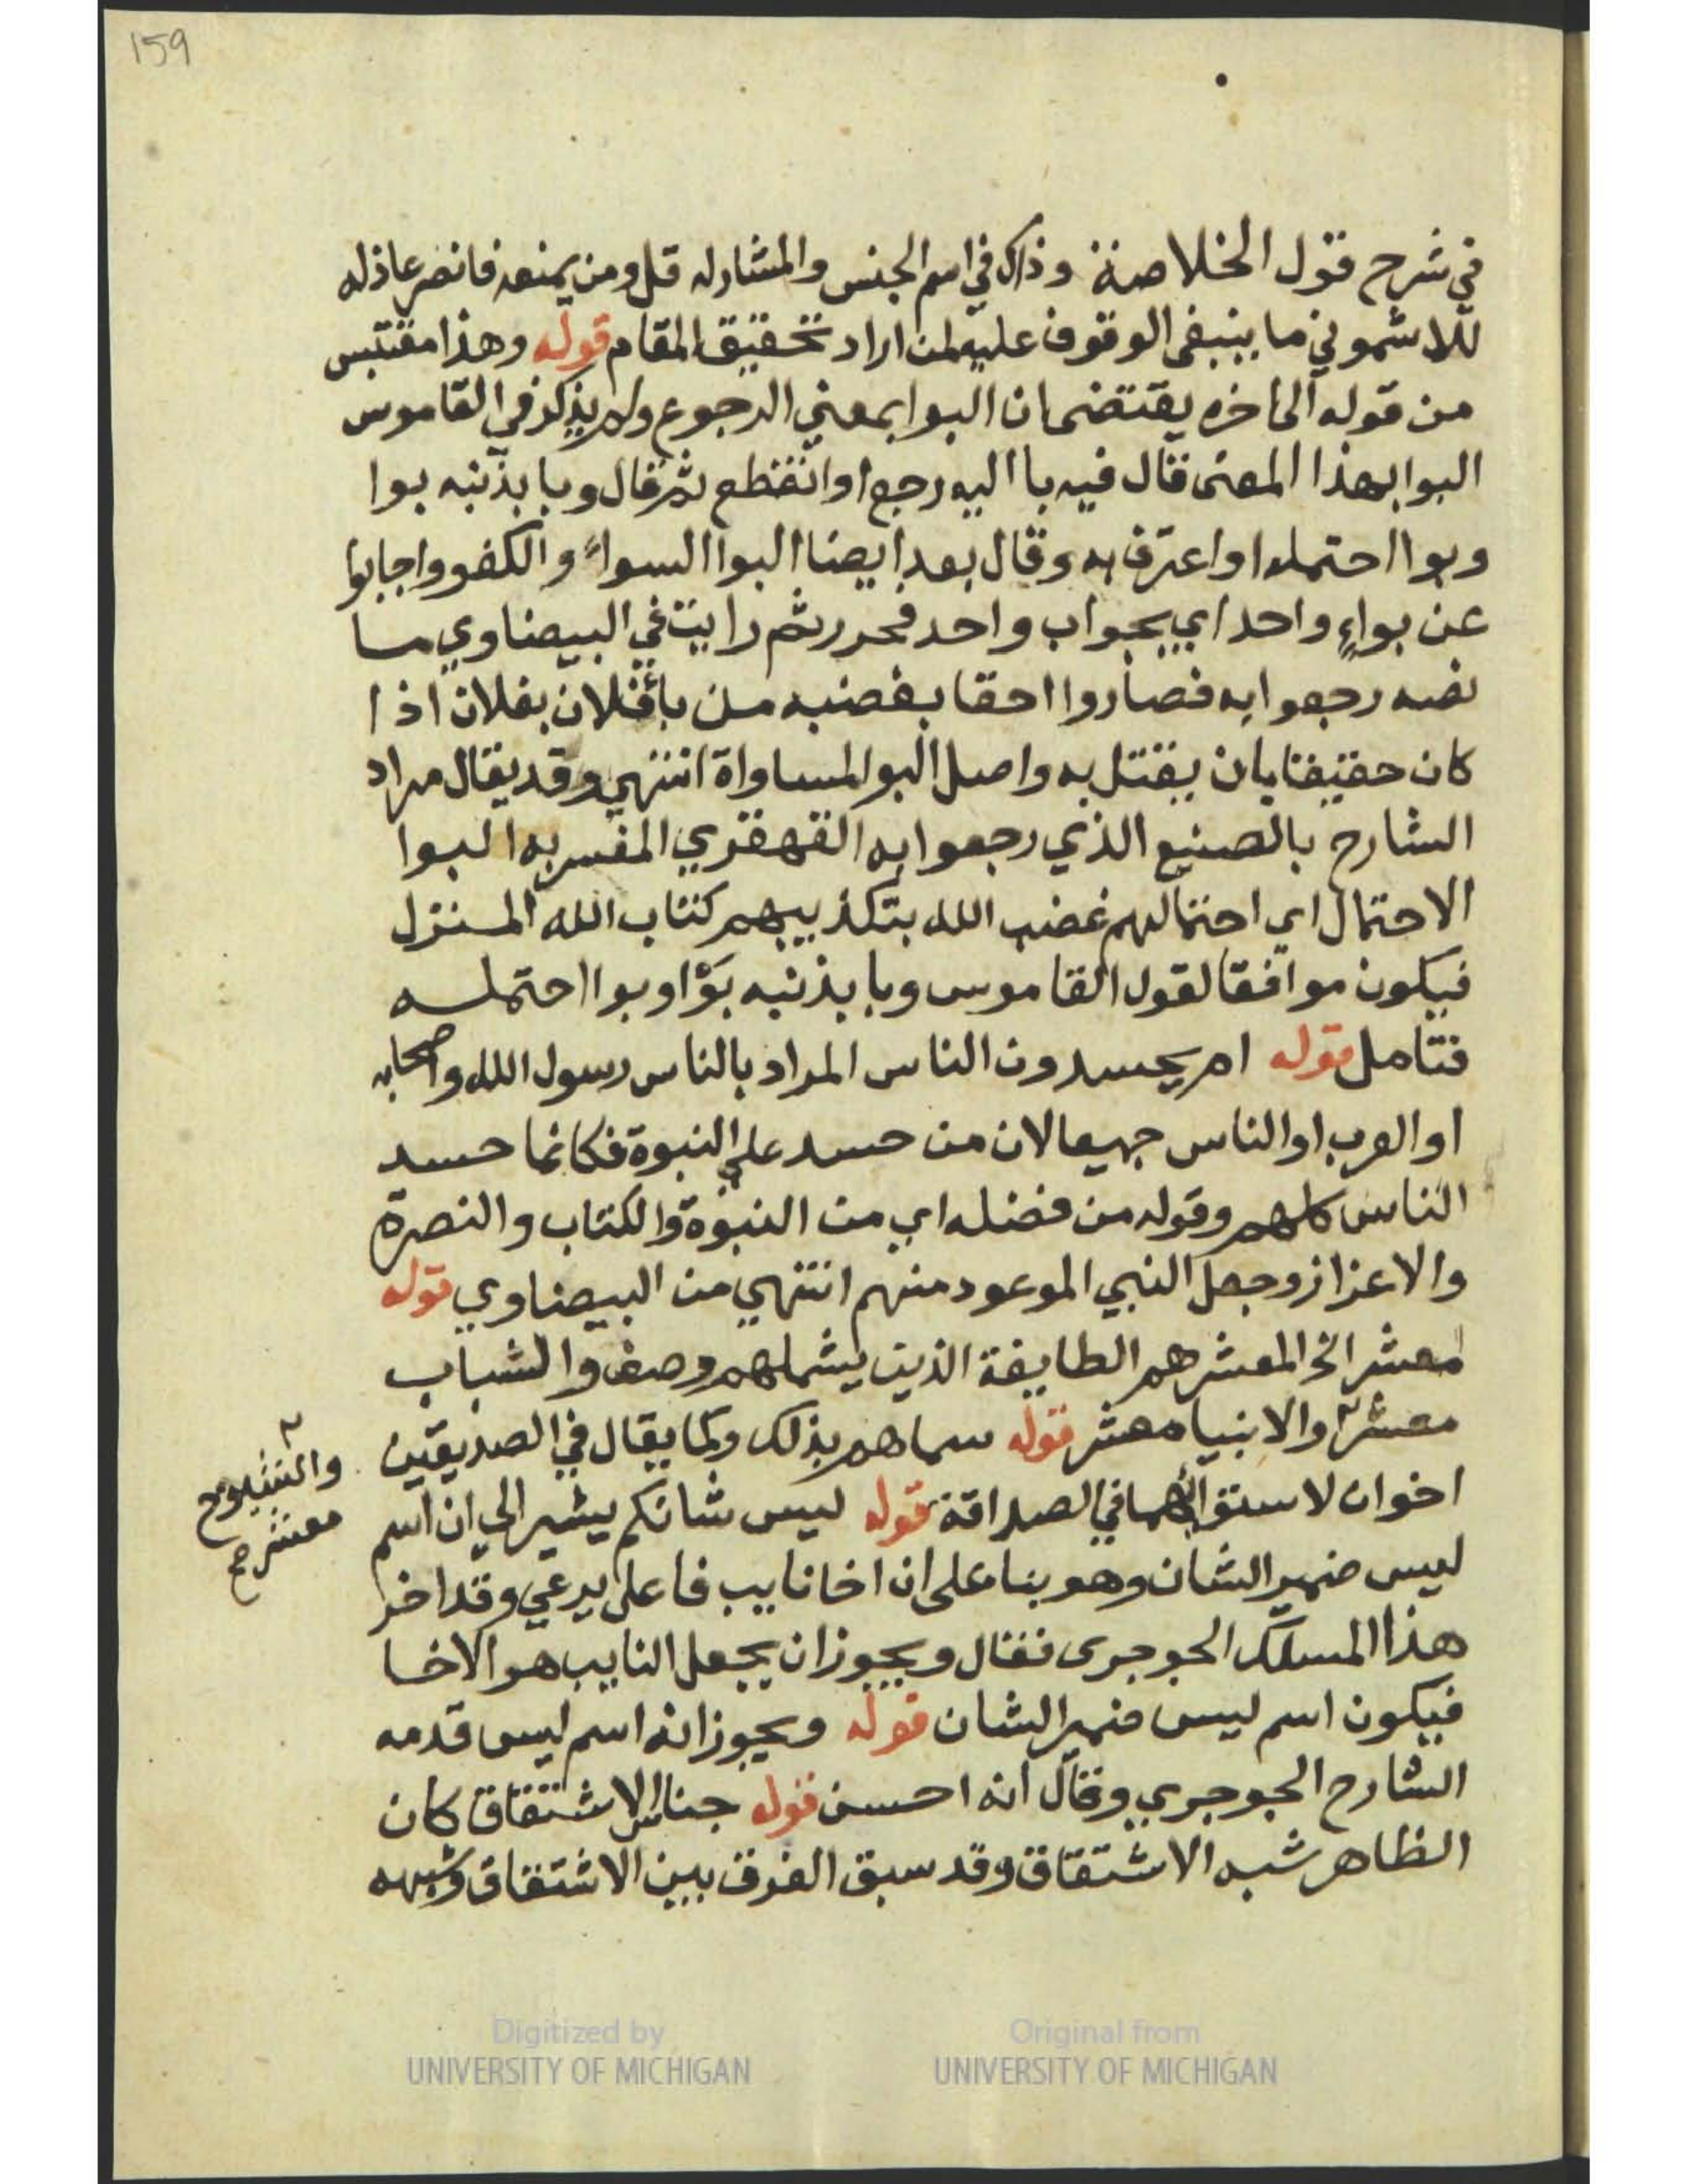 159
في شرح قول الخلاصة وذاك في اسم الجنس والمشار له قل ومن يمنعه فانصر عاذله
للاشموني ما ينبغي الوقوف عليه لمن اراد تحقيق المقام قوله وهذا مقتبس
من قوله الى اخره يقتضي ان البوا بمعني الرجوع ولم يذكر في القاموس
البوا بهذا المعنى قال فيه با اليه رجع او انقطع ثم قال وبا بذنبه بوا
وبوا احتمله او اعترف به وقال بعد ايضا البوا السواء والكفو واجابوا
عن بواء واحد اي بجواب واحد فحرر ثم رايت في البيضاوي ما
نصه رجعوا به فصاروا احقا بغضبه من باء فلان بفلان اذا
كان حقيقا بان يقتل به واصل البو المساواة انتهي وقد يقال مراد
الشارح بالصنيع الذي رجعوا به القهقري المفسر به البوا
الاحتمال اي احتمالهم غضب الله بتكذيبهم كتاب الله المنزل
فيكون موافقا لقول القاموس وبا بذنبه بوا وبوا احتمله
فتامل قوله ام يحسدون الناس المراد بالناس رسول الله واصحابه
او العرب او الناس جميعا لان من حسد علي النبوة فكانما حسد
الناس كلهم وقوله من فضله اي من النبوة والكتاب والنصرة
والاعزاز وجعل النبي الموعود منهم انتهي من البيضاوي قوله
معشر الخ المعشر هم الطايفة الذين يشملهم وصف والشباب
معشر والانبيا معشر قوله سماهم بذلك وكما يقال في الصديقين
والشيوخ
معشر صح
اخوان لاستوائهما في الصداقة قوله ليس شانكم يشير الي ان اسم
ليس ضمير الشان وهو بنا على ان اخا نايب فاعل يدعي وقد اخر
هذا المسلك الجوجرى فقال ويجوز ان يجعل النايب هو الاخا
فيكون اسم ليس ضمير الشان قوله ويجوز انه اسم ليس قدمه
الشارح الجوجري وقال انه احسن قوله جناس الاشتقاق كان
الظاهر شبه الاشتقاق وقد سبق الفرق بين الاشتقاق وشبهه
Digitized by
UNIVERSITY OF MICHIGAN
Original from
UNIVERSITY OF MICHIGAN